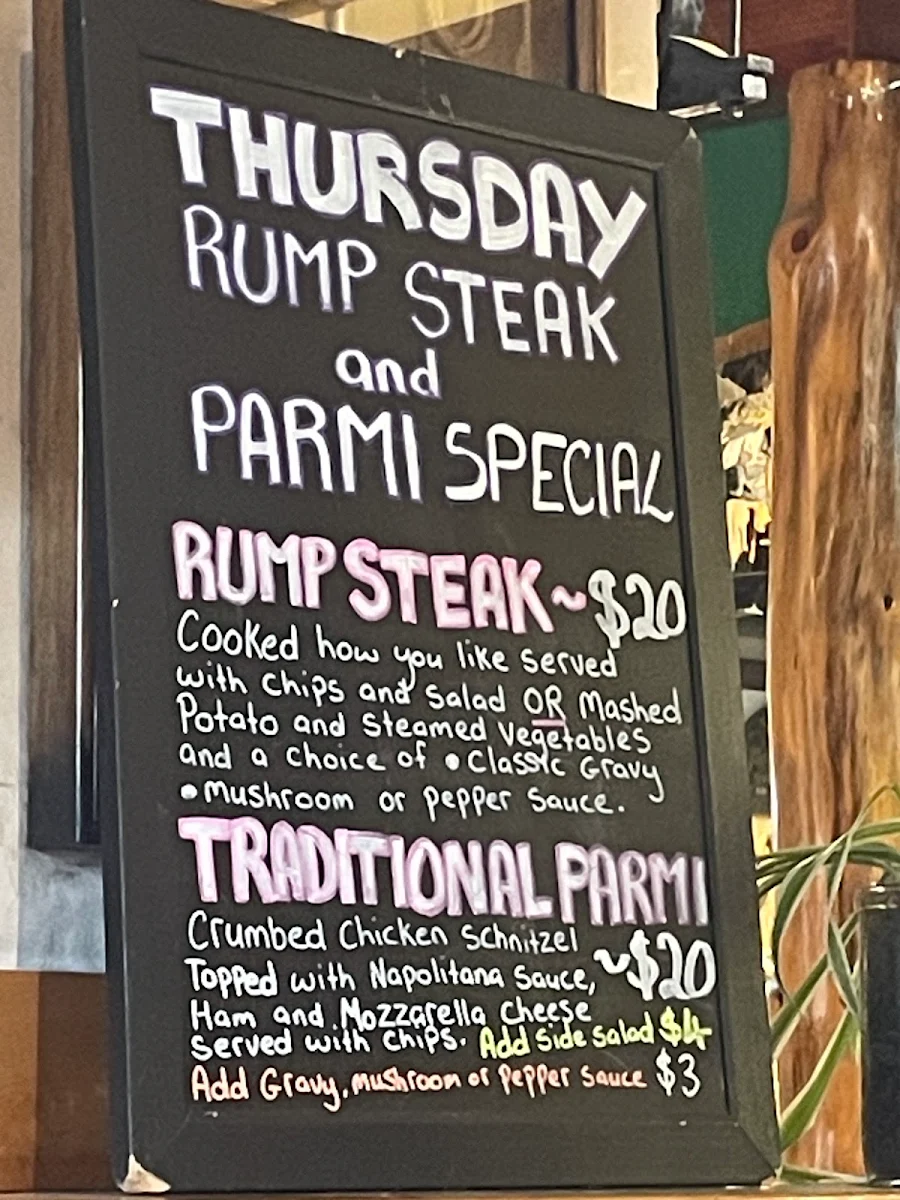 THURSDAY
RUMP STEAK
and
PARMI SPECIAL
RUMP STEAK ~ $20
Cooked how you like served
with chips and salad OR Mashed
Potato and Steamed Vegetables
and a choice of • Classic Gravy
• mushroom or pepper sauce.
TRADITIONAL PARMI
Crumbed Chicken Schnitzel
~ $20
Topped with Napolitana Sauce,
Ham and Mozzarella cheese
served with chips. Add side salad $4
Add Gravy, mushroom or pepper sauce $3